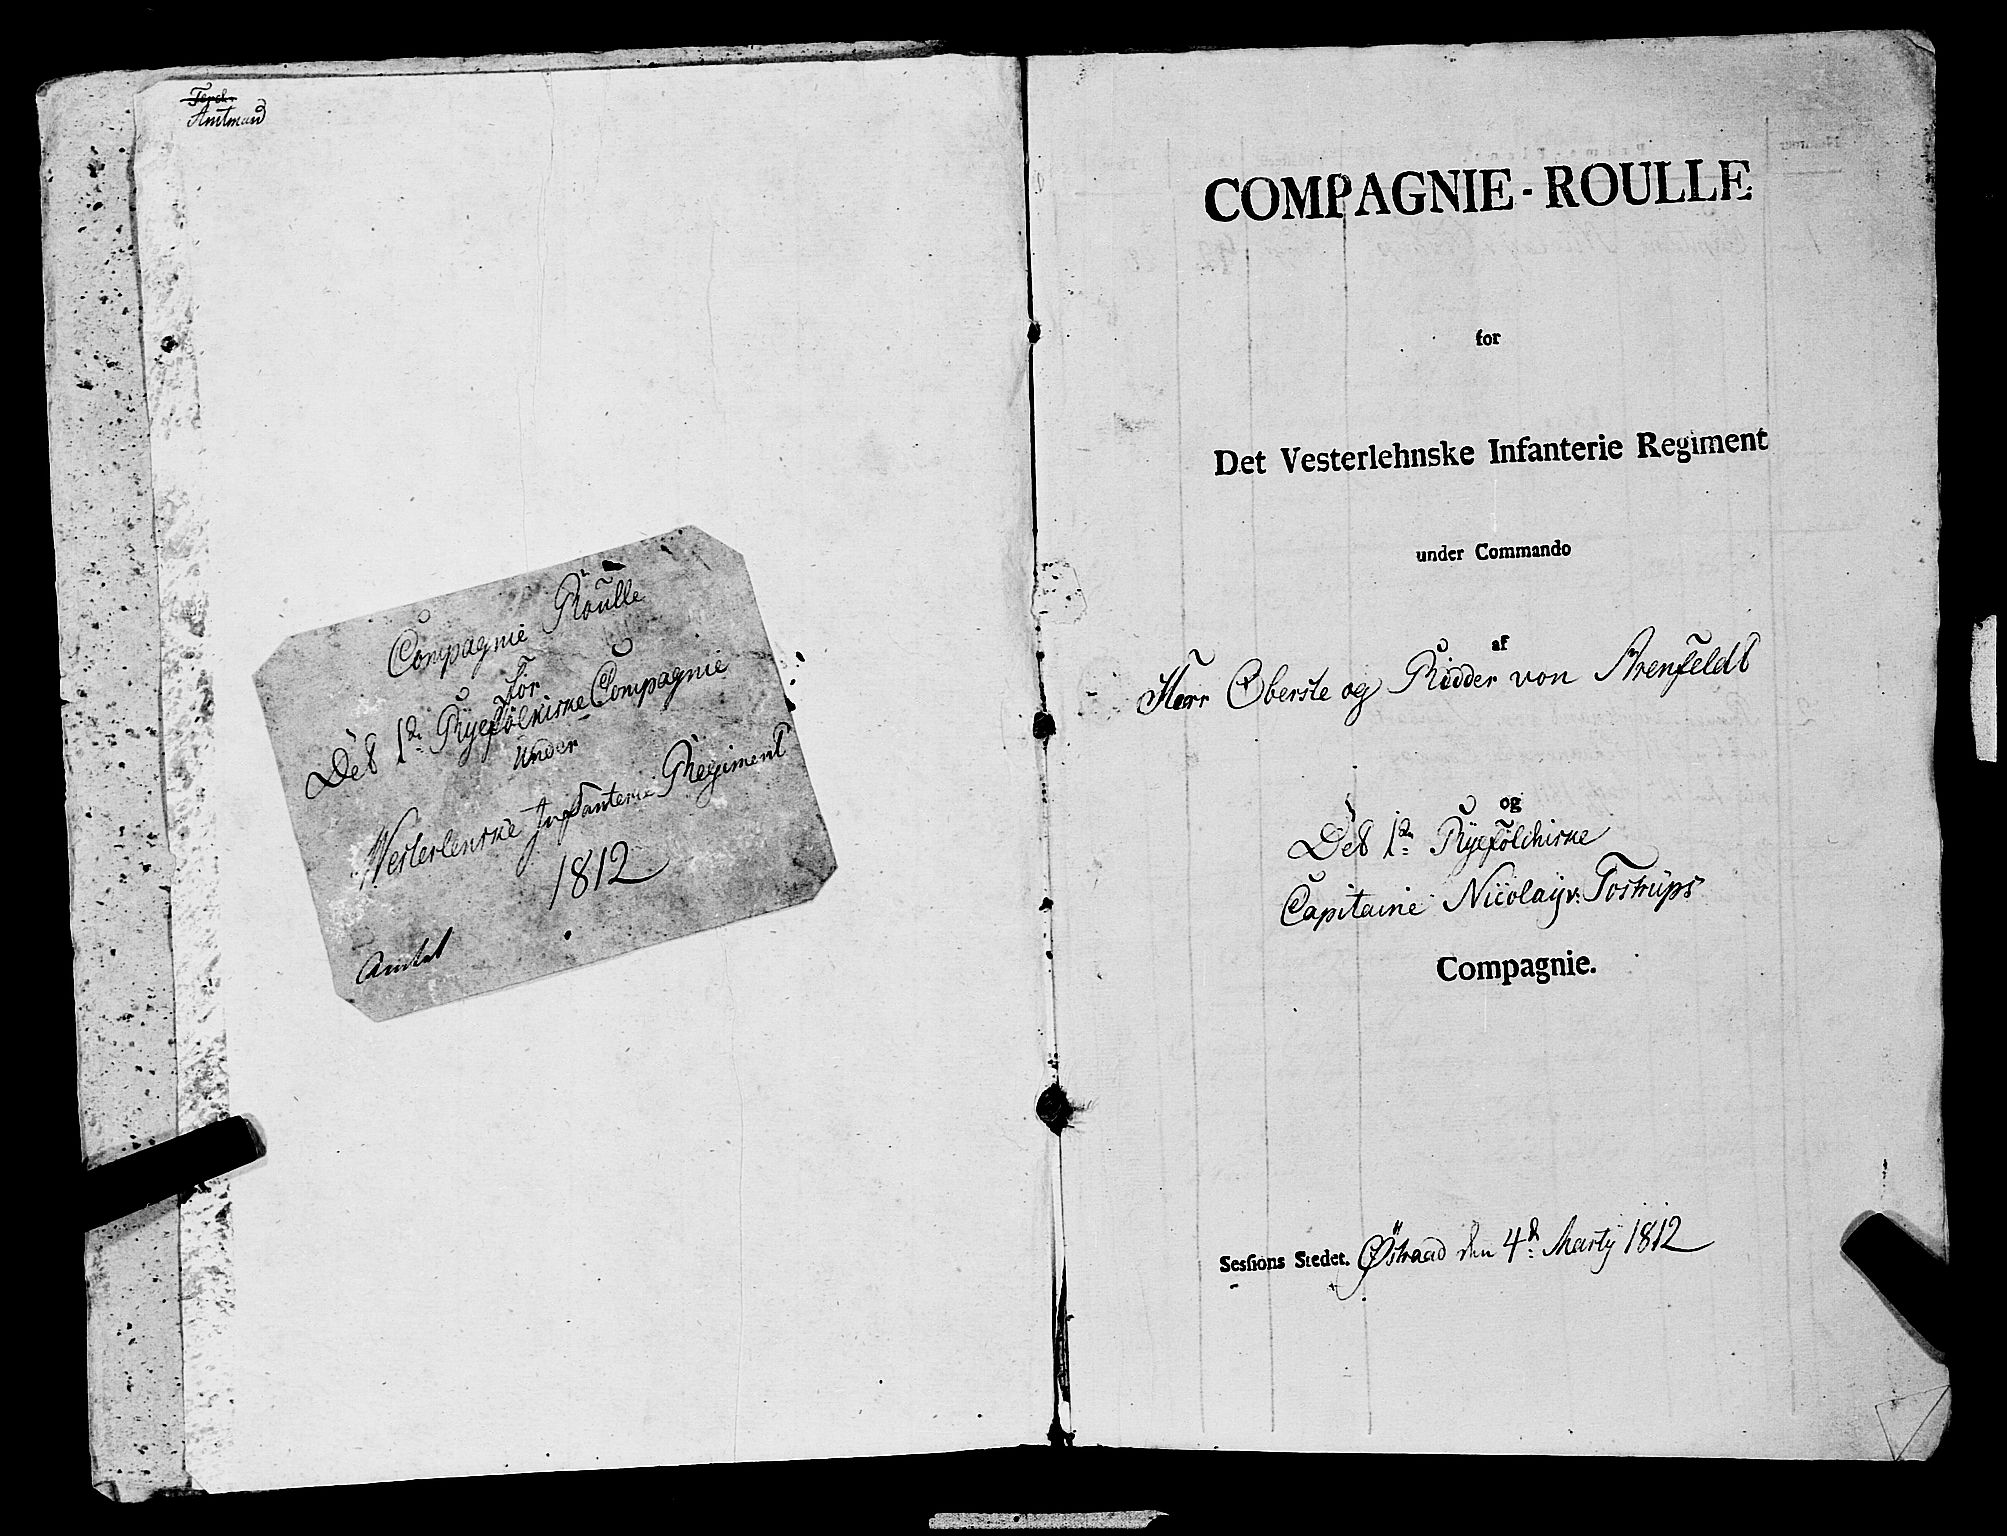 Amtmand
Compagnie Roulle
for
Det 1te Ryefölkiske Compagnie
under
Westerlenske Infanterie Regiment
1812
Amtet
COMPAGNIE-ROULLE
for
Det Vesterlehnske Infanterie Regiment
under Commando
af
Herr Oberste og Ridder von Arenfeldt
og
Det 1te Ryefölckiske
Capitaine Nicolay v: Tostrups
Compagnie.
Sesſions Stedet. Østraad den 4de Marty 1812